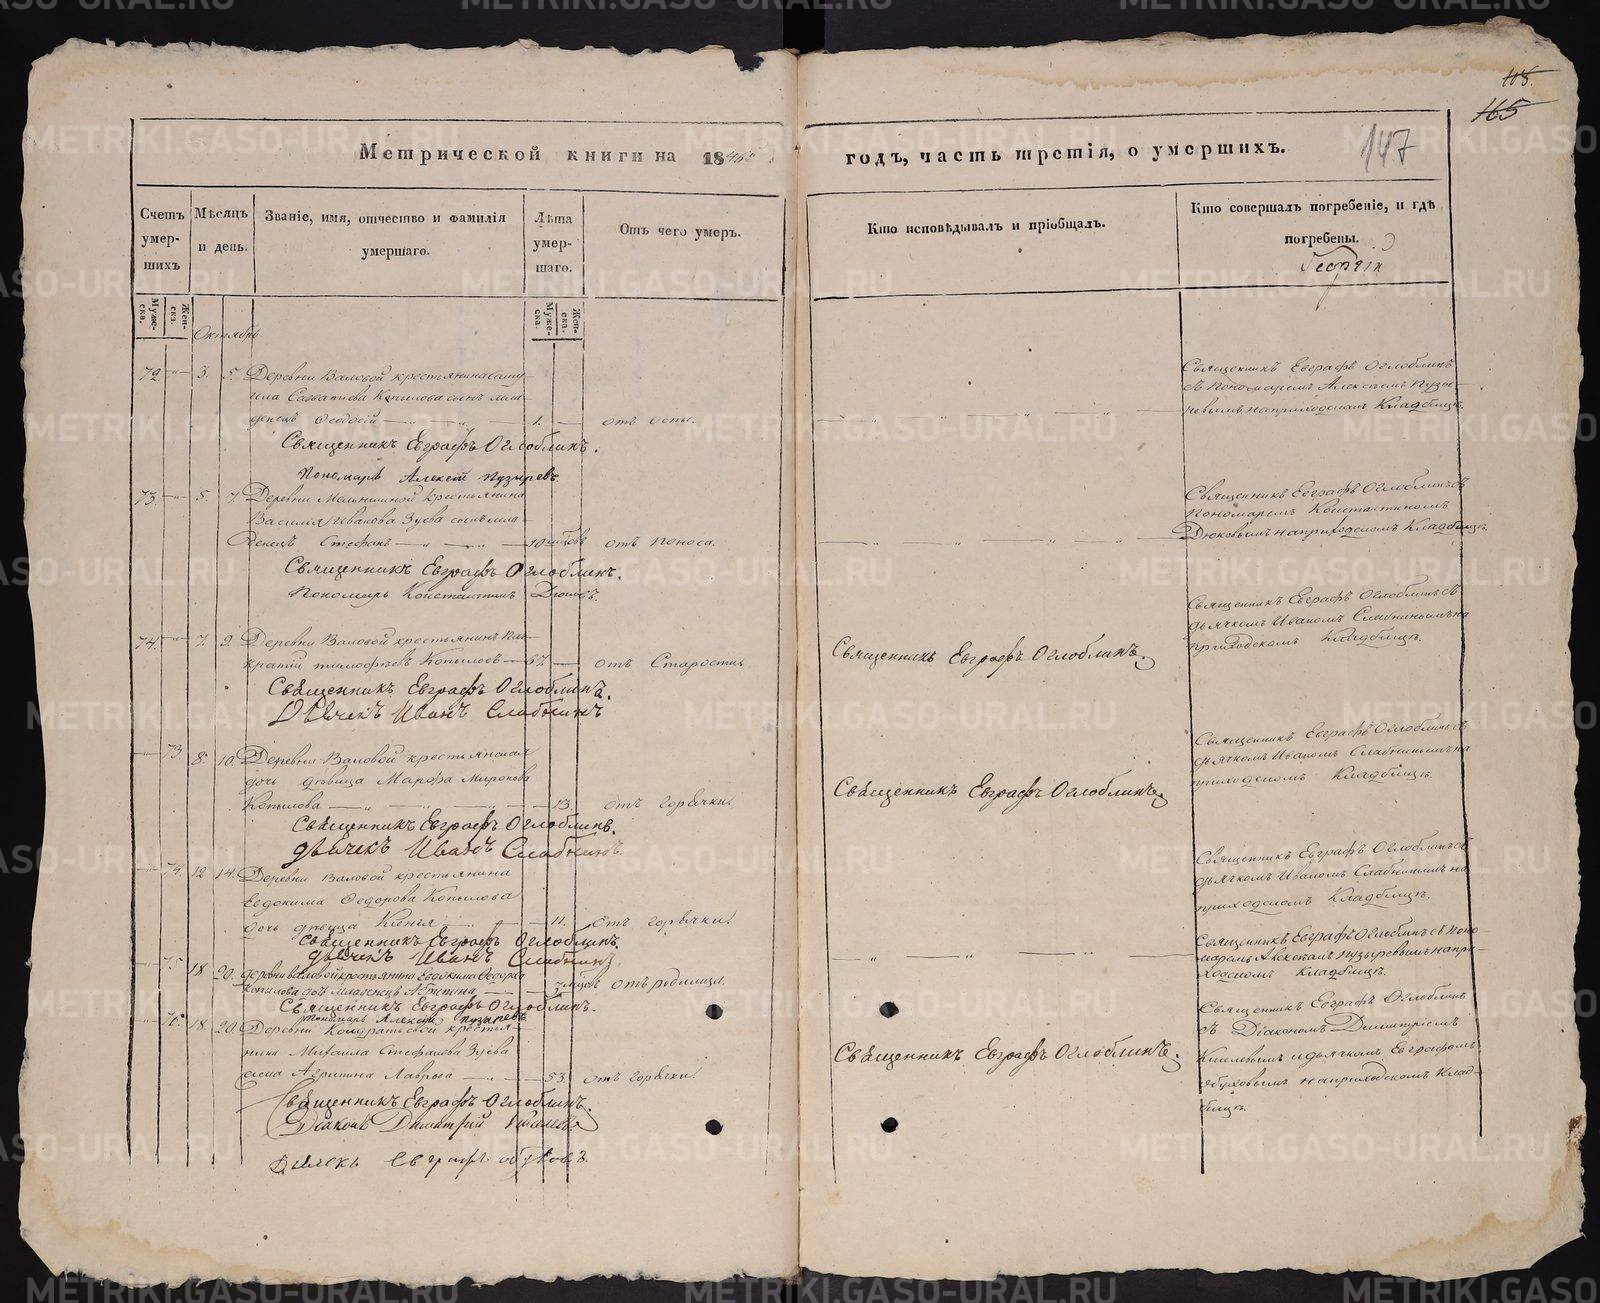 108.
165
147
Метрической книги на 1840й
годъ, часть третія, о умершихъ.
Счетъ умер-шихъ
Мѣсяцъ и день.
Званіе, имя, отчество и фамилія умершаго.
Лѣта умер-шаго.
Отъ чего умеръ.
Кто исповѣдывалъ и пріобщалъ.
Кто совершалъ погребеніе, и гдѣ погребены.
Георгій
Муже-ска.
Жен-ска.
Муже-ска.
Жен-ска.
Октябрь
72. 3. 5. Деревни Валовой крестьянина
Савватіева Копылова сынъ мла-
денецъ Ѳеодосій 1. отъ оспы.
Священникъ Евграфъ Оглоблинъ
съ Пономаремъ Алексѣемъ Пузы-
ревымъ на приходскомъ Кладбищѣ.
Священникъ Евграфъ Оглоблинъ.
Пономарь Алексій Пузыревъ
73. 5. 7. Деревни Мельниной крестьянина
Василія Иванова Зуева сынъ мла-
денецъ Стефанъ 10 отъ поноса.
Священникъ Евграфъ Оглоблинъ съ
Пономаремъ Константиномъ
Дюковымъ на приходскомъ Кладбищѣ.
Священникъ Евграфъ Оглоблинъ.
Пономарь Константинъ Дюковъ.
74. 7. 9. Деревни Валовой крестьянинъ
Тимофѣевъ Копыловъ 67. отъ Старости.
Священникъ Евграфъ Оглоблинъ.
Священникъ Евграфъ Оглоблинъ съ
дьячкомъ Иваномъ Слабнинымъ на
приходскомъ Кладбищѣ.
Священникъ Евграфъ Оглоблинъ.
Дьячекъ Иванъ Слабнинъ
73. 8. 10. Деревни Валовой крестьянская
дочь дѣвица Марѳа Миронова
Копылова 13. отъ горячки.
Священникъ Евграфъ Оглоблинъ.
Священникъ Евграфъ Оглоблинъ съ
дьячкомъ Иваномъ Слабнинымъ на
приходскомъ Кладбищѣ.
Священникъ Евграфъ Оглоблинъ.
Дьячекъ Иванъ Слабнинъ.
74. 12 14. Деревни Валовой крестьянина
Евдокима Ѳедорова Копылова
дочь дѣвица Ксенья 11. отъ горячки.
Священникъ Евграфъ Оглоблинъ съ
дьячкомъ Иваномъ Слабнинымъ на
приходскомъ Кладбищѣ.
Священникъ Евграфъ Оглоблинъ.
Дьячекъ Иванъ Слабнинъ.
75 18. 20. деревни Валовой крестьянина Евдокима Ѳедорова
Копылова дочь младенецъ Агрипина отъ родимца.
Священникъ Евграфъ Оглоблинъ съ Поно-
маремъ Алексѣемъ Пузыревымъ на при-
ходскомъ Кладбищѣ.
Священникъ Евграфъ Оглоблинъ.
Пономарь Алексій Пузыревъ
76. 18. 20. Деревни Кондратьевой крестья-
нина Михаила Стефанова Зуева
жена Агрипина Лаврова 53. отъ горячки.
Священникъ Евграфъ Оглоблинъ.
Священникъ Евграфъ Оглоблинъ
съ Діакономъ Димитріемъ
Киселевымъ и дьячкомъ Евграфомъ
Обуховымъ на приходскомъ Клад-
бищѣ.
Священникъ Евграфъ Оглоблинъ.
Діаконъ Димитрій Киселевъ
Дьячекъ Евграфъ Обуховъ.
METRIKI.GASO-URAL.RU